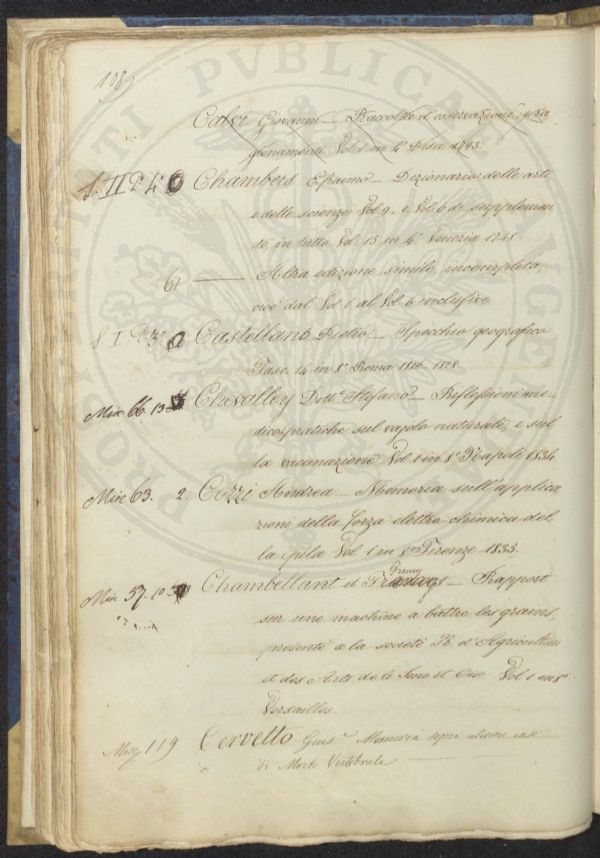 108
Giovanni — Raccolta d'osservazioni, e ra
gionamenti Vol. 1 in 4° Pisa 1793.
Chambers Efraimo — Dizionario delle arti,
e delle scienze, Vol. 9. e Vol. 6 di supplemen
to, in tutto Vol. 15 in 4° Venezia 1748.
61 ——— Altra edizione simile, incompleta,
cioè dal Vol. 1 al Vol. 6 inclusive
Castellano Pietro — Specchio geografico
Fasc. 14 in 8° Roma 1826-1828.
Misc 66. 13 Chevalley Dott.r Stefano — Riflessioni me=
dico=pratiche sul vajolo naturale, e sul
la vaccinazione Vol. 1 in 8° Napoli 1834
Misc 63. 2. Cozzi Andrea — Memoria sull'applica
zioni della forza elettro-chimica del
la pila Vol. 1 in 8° Firenze 1835.
Misc 57. Chambellant et Fremy — Rapport
sur une machine a battre les grains,
presenté a la societé R. d'Agriculture
et des Arts de Seine et Oise Vol. 1 en 8°
Versailles.
119 Cervetto Gius.e Memoria sopra alcuni casi
di Morbo Vertebrale
PROSPERITATI PVBLICAE AVGENDAE